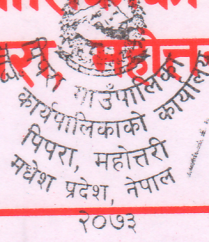 रा, महोत्त
गाउँपालिका
कार्यपालिकाको कार्यालय
पिपरा, महोत्तरी
मधेश प्रदेश, नेपाल
२०७३